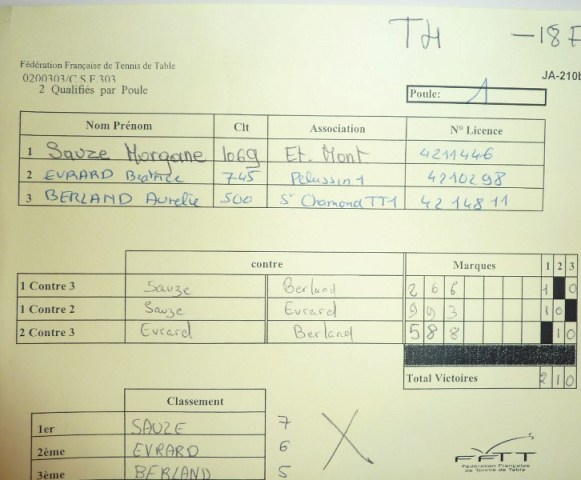 TH -18F
Fédération Française de Tennis de Table
0200303/C.S.F.303
2 Qualifiés par Poule
JA-210b
Poule: 1
Nom Prénom Clt Association N° Licence
1 Sauze Morgane 1069 Et. Mont 4211446
2 EVRARD Beatrice 745 Pelussin 1 4210298
3 BERLAND Aurelie 500 St Chamond TT1 4214811
contre Marques 1 2 3
1 Contre 3 Sauze Berland 2 6 6 1 0
1 Contre 2 Sauze Evrard 9 9 3 1 0
2 Contre 3 Evrard Berland 5 8 8 1 0
Total Victoires 2 1 0
Classement
1er SAUZE 7
2ème EVRARD 6
3ème BERLAND 5
FFTT
Fédération Française
de Tennis de Table